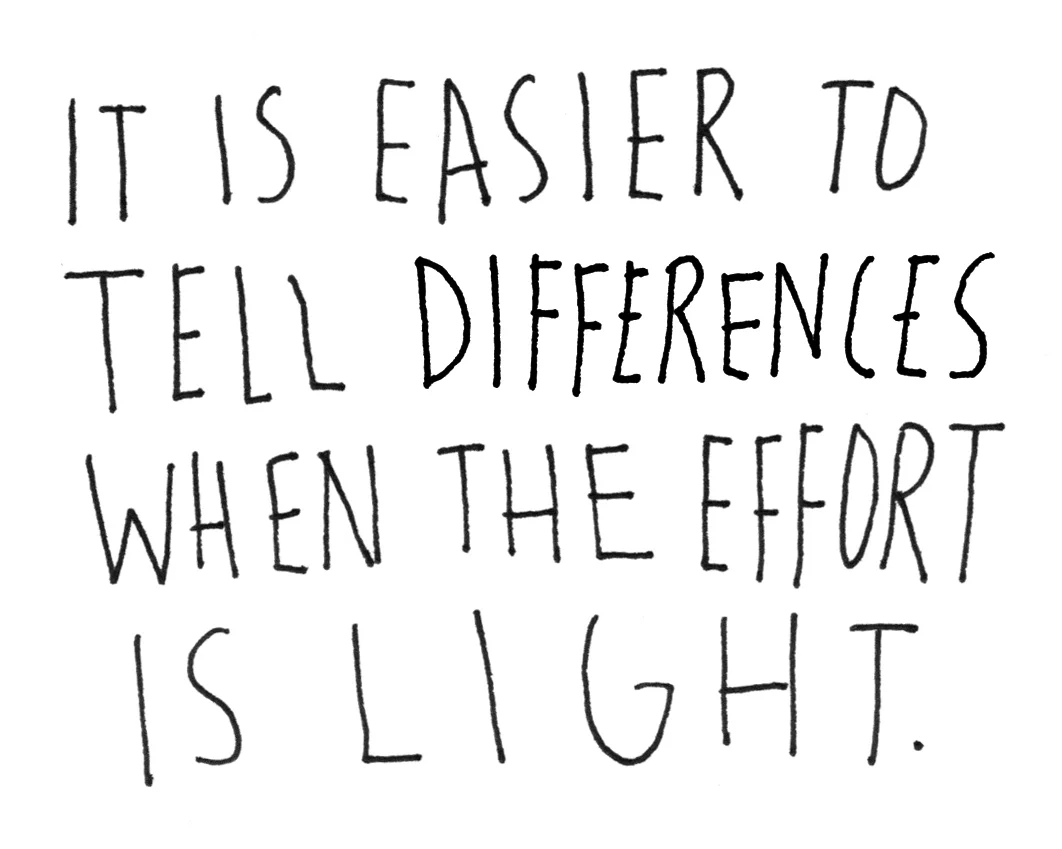 IT IS EASIER TO
TELL DIFFERENCES
WHEN THE EFFORT
IS LIGHT.